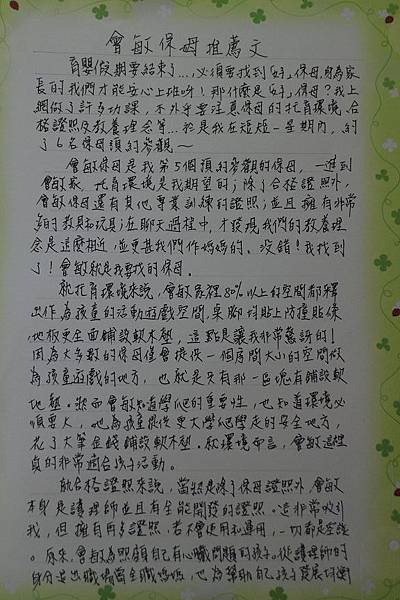 會敏保母推薦文
育嬰假期要結束了…,必須要找到「好」保母,身為家
長的我們才能安心上班呀!那什麼是「好」保母?我上
網做了許多功課,不外乎要注意保母的托育環境、合
格證照及教養理念等…於是我在短短一星期內,約
了6名保母預約參觀~
會敏保母是我第5個預約參觀的保母,一進到
會敏家,托育環境是我期望的;除了合格證照外,
會敏保母還有其他專業訓練的證照;並且擁有非常
多的教具和玩具;在聊天過程中,才發現我們的教養理
念是這麼相近,並更甚我們作媽媽的。沒錯!我找到
了!會敏就是我要找的保母。
就托育環境來說,會敏家裡80%以上的空間都釋
出作為孩童的活動遊戲空間,桌腳、牆貼上防撞貼條
地板更全面鋪設軟木墊,這點是讓我非常驚訝的!
因為大多數的保母僅會提供一個房間大小的空間做
為孩童遊戲的地方,也就是只有那一區塊有鋪設軟
地墊。然而會敏知道學爬的重要性,也知道環境必
須要大,他為孩童提供更大學爬學走的安全地方,
花了大筆金錢鋪設軟木墊。就環境而言,會敏這裡
真的非常適合孩子活動。
就合格證照來說,當然是除了保母證照外,會敏
本身是護理師並且有全能開發的證照。這非常吸引
我,但擁有再多證照,若不會使用和運用,一切都是空談
。原來,會敏為照顧自己有心臟問題的孩子,從護理師的
身分退出職場當全職媽媽,也為幫助自己孩子發展